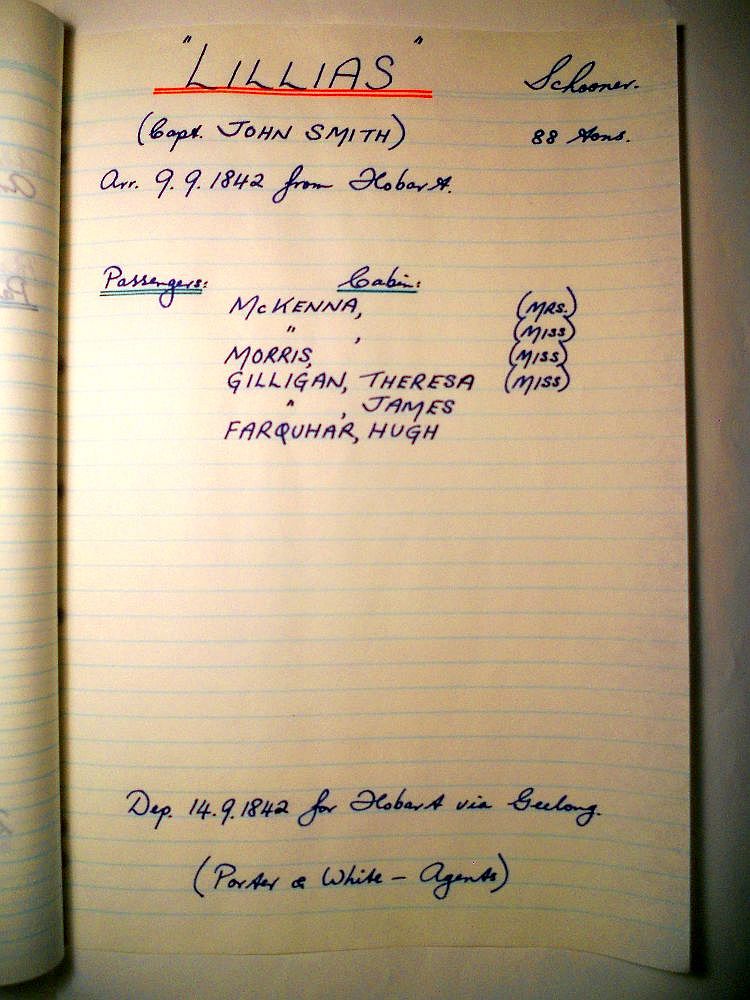 "LILLIAS" Schooner.
(Capt. JOHN SMITH) 88 tons.
Arr. 9.9.1842 from Hobart.
Passengers: Cabin:
McKENNA, (MRS.)
" , (MISS)
MORRIS, (MISS)
GILLIGAN, THERESA (MISS)
" , JAMES
FARQUHAR, HUGH
Dep. 14.9.1842 for Hobart via Geelong.
(Porter & White - Agents)